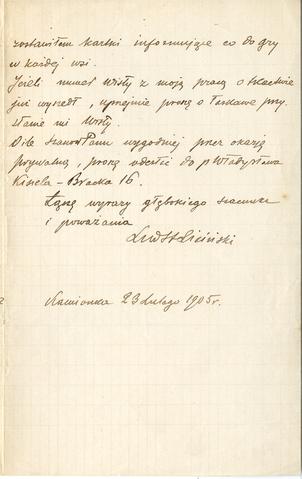 zostawiłem kartki informujące co do gry
w każdej wsi.
Jeżeli numer Wisły z moją pracą o
już wyszedł, uprzejmie proszę o łaskawe przy
słanie mi Wisły.
O ile Szanow. Panu wygodniej przez okazję
prywatną, proszę odesłać do p Władysława
Kisiela - Bracka 16.
Łączę wyrazy głębokiego szacunku
i poważania
Lud St Liciński
Kamionka 23 Lutego 1905 r.